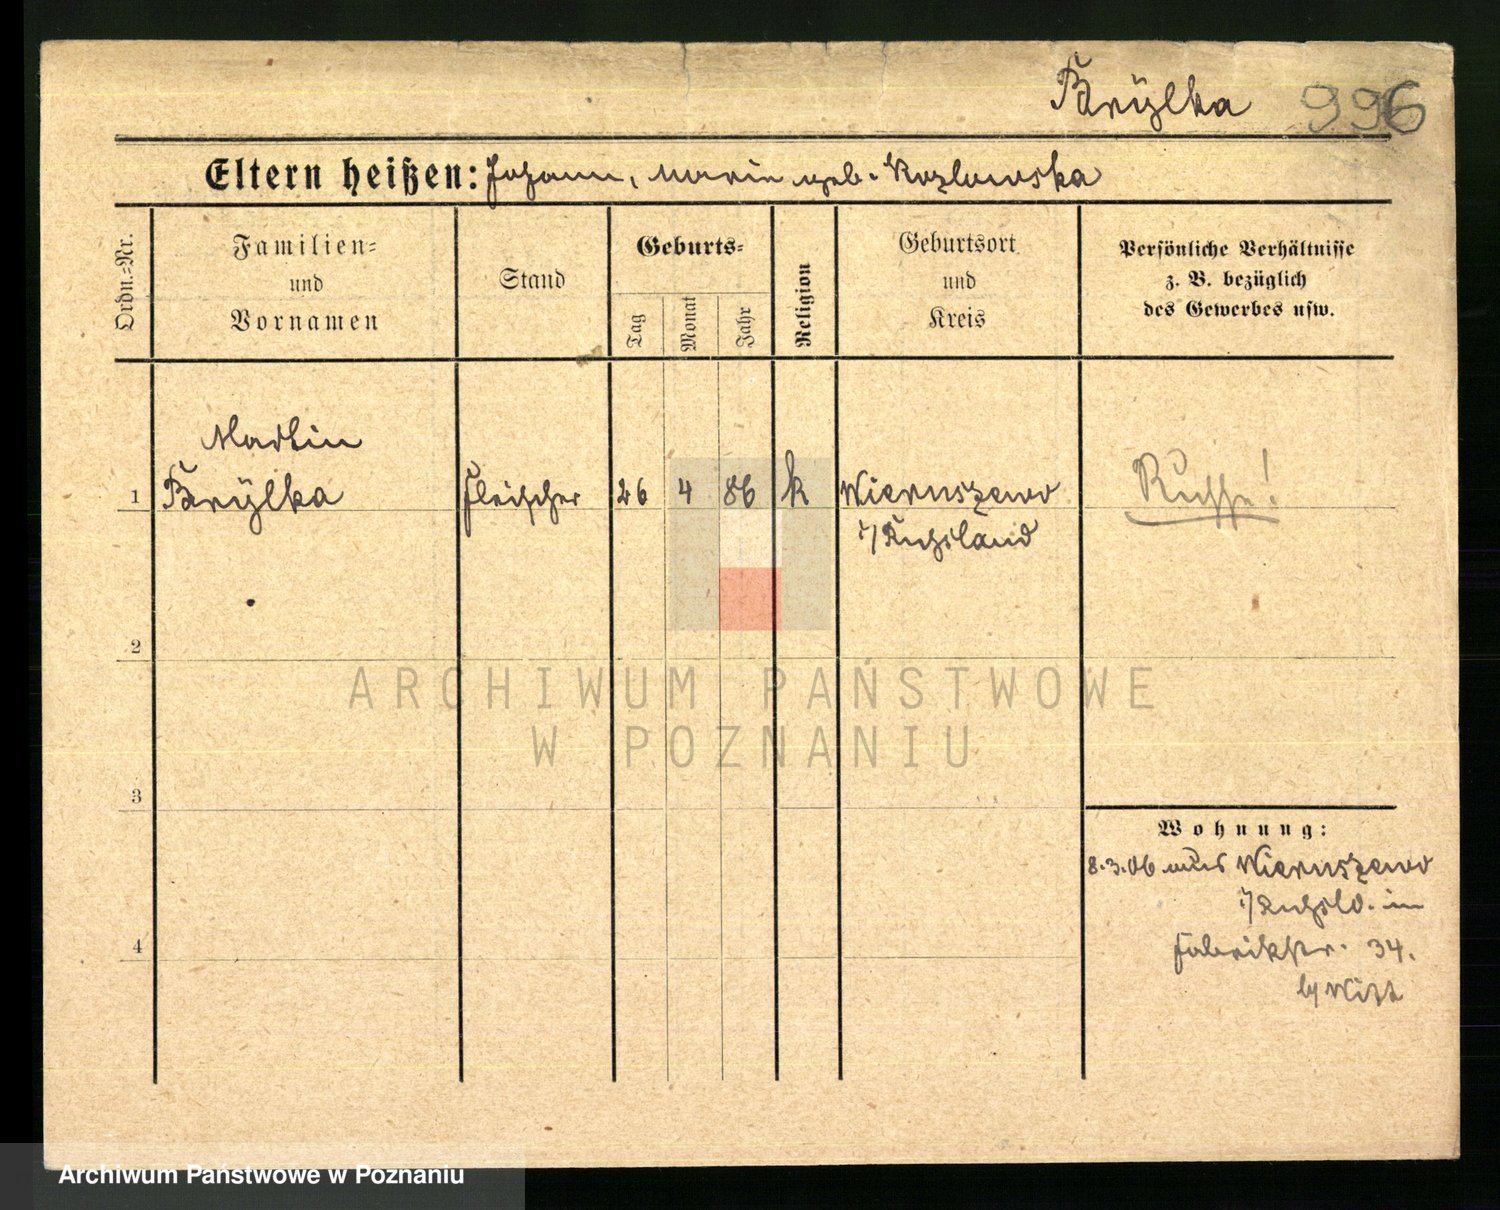 Brÿlka 996
Eltern heißen: Johann, Marie geb. Kozlowska
Ordn.=Nr.
Familien=
und
Vornamen
Stand
Geburts=
Tag
Monat
Jahr
Religion
Geburtsort
und
Kreis
Persönliche Verhältnisse
z. B. bezüglich
des Gewerbes usw.
Martin
1 Brÿlka Fleischer 26 4 86 k Wieruszewo Russe!
i/Russland
2
ARCHIWUM PAŃSTWOWE
W POZNANIU
3
Wohnung:
8.3.06 aus Wieruszewo
i/Russld. in
Fabrikstr. 34.
4
b/Witt
Archiwum Państwowe w Poznaniu